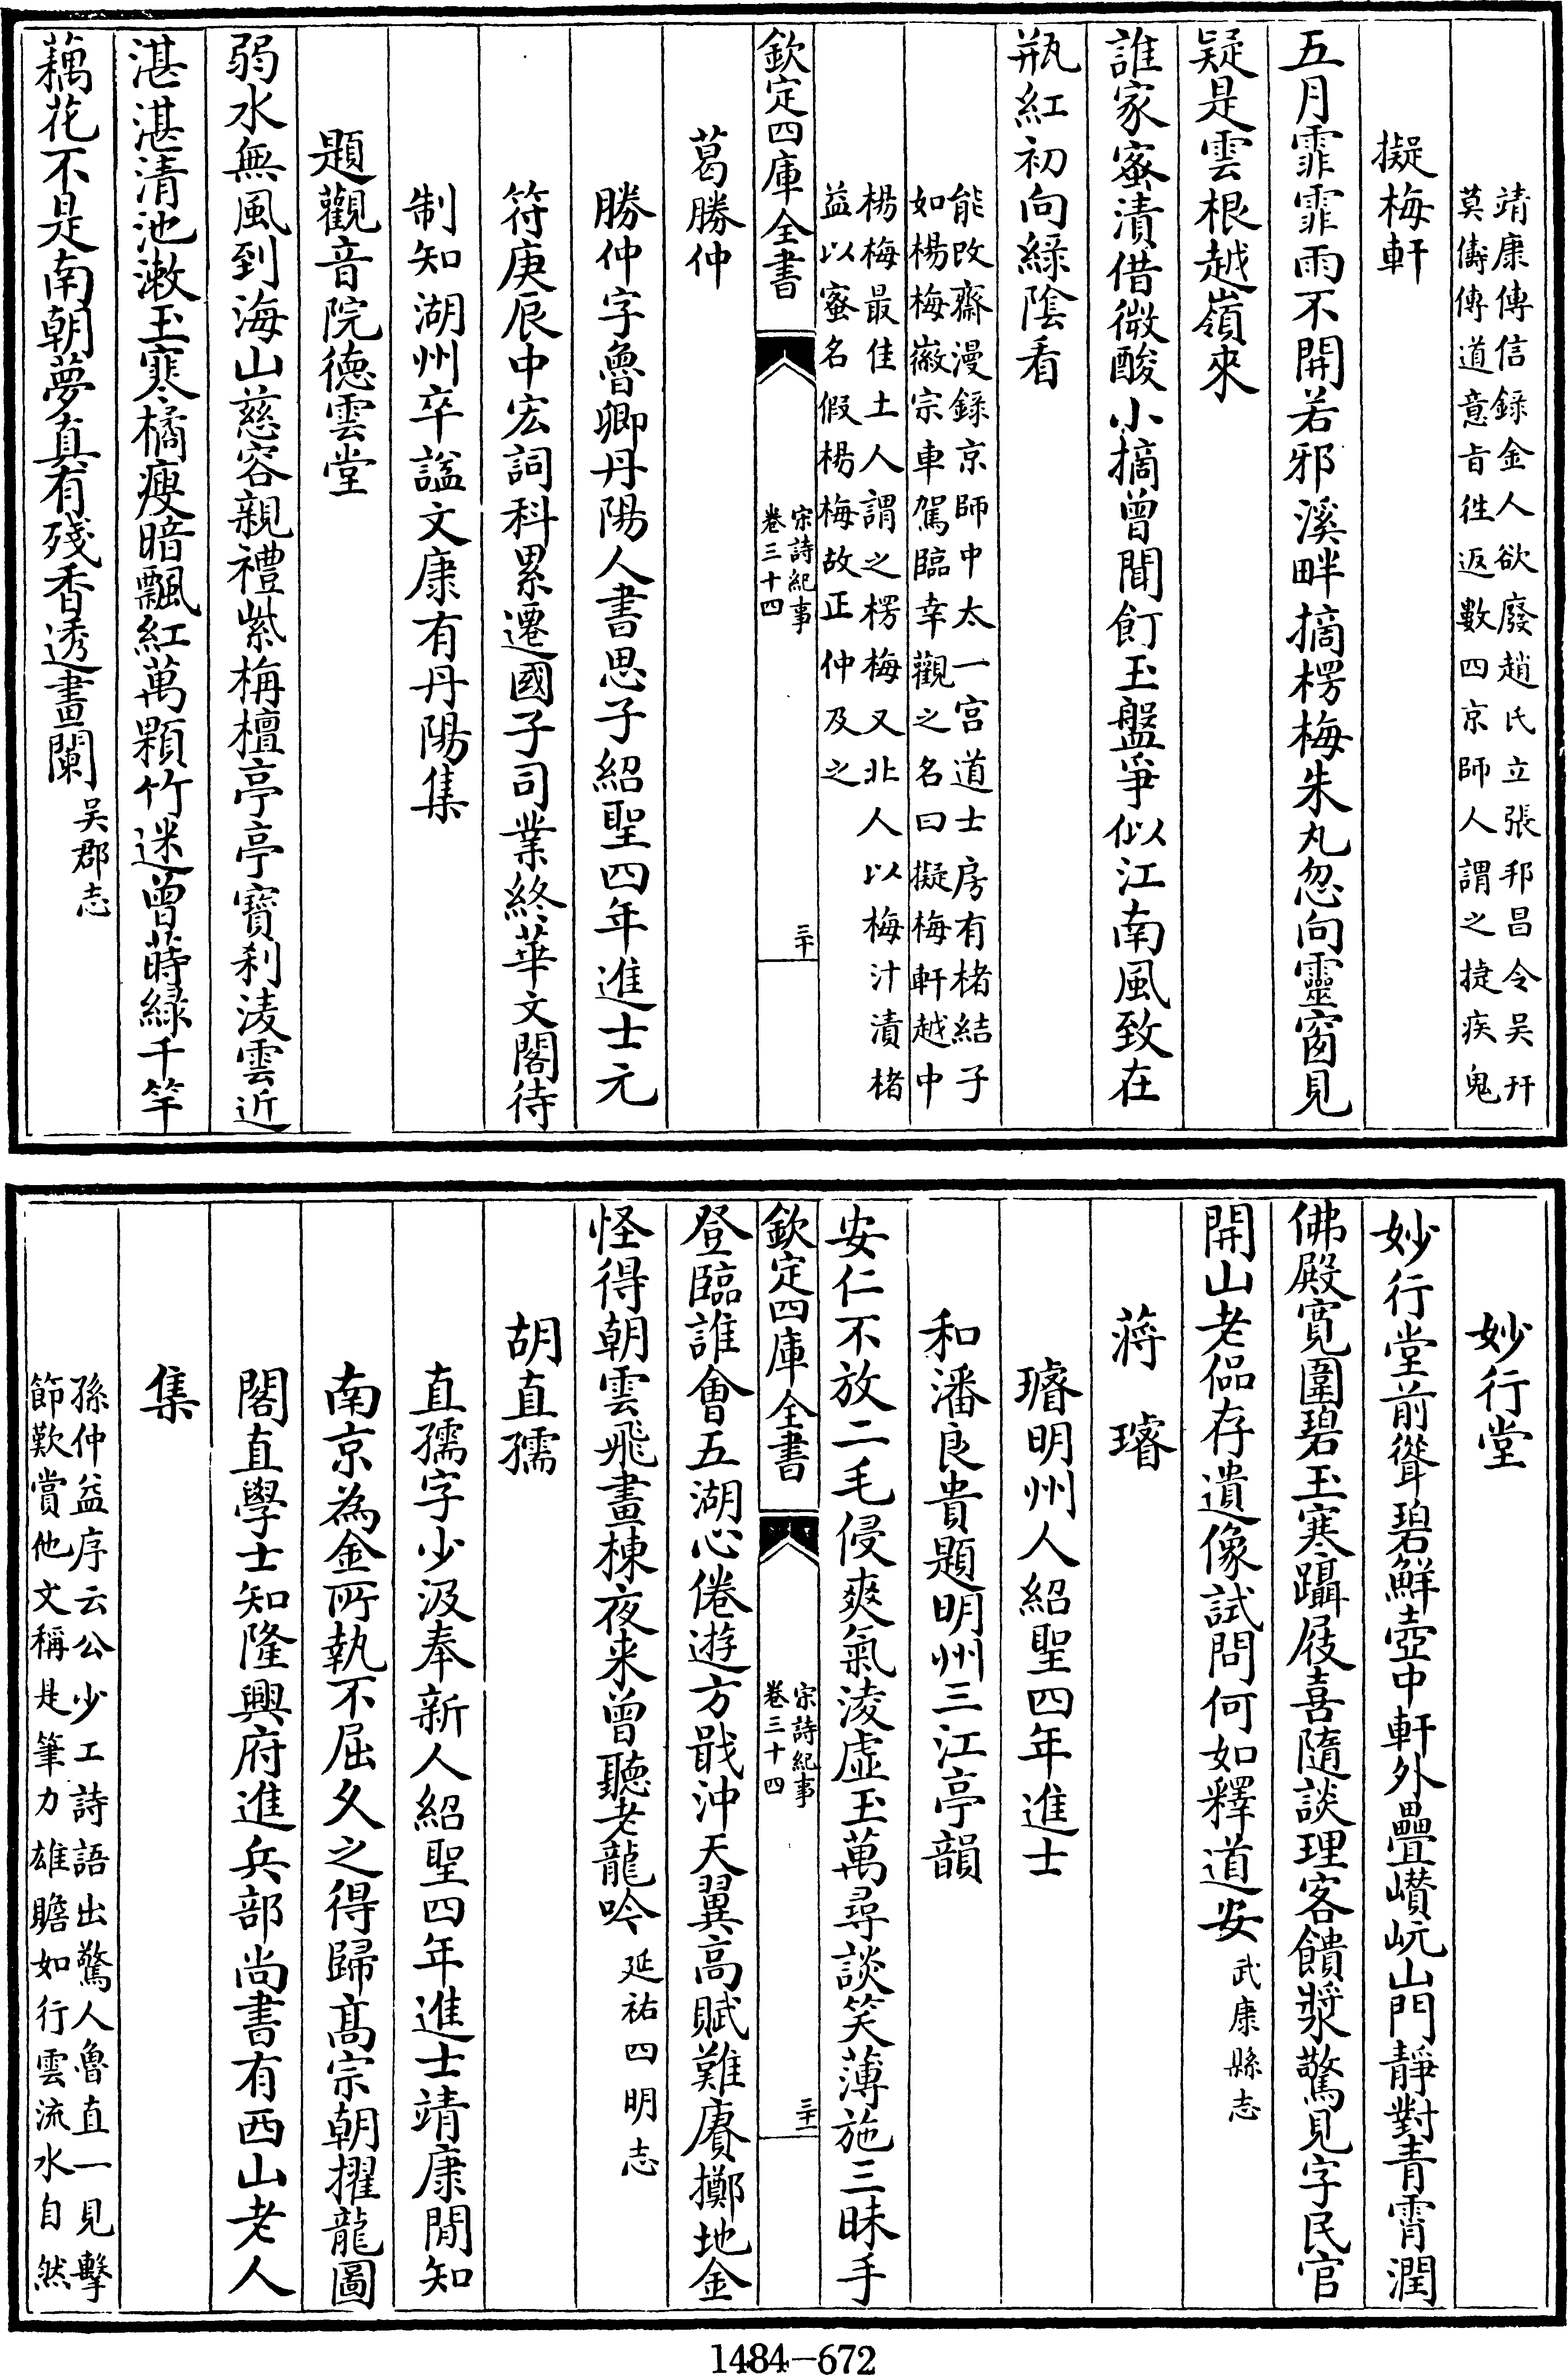 靖康傳信録金人欲廢趙氏立張邦昌令吴幵
莫儔傳道意㫖徃返數四京師人謂之捷疾鬼
擬梅軒
五月霏霏雨不開若邪溪畔摘楞梅朱丸忽向靈窗見
疑是雲根越嶺來
誰家蜜漬借微酸小摘曾聞飣玉盤爭似江南風致在
瓶紅初向緑隂看
能改齋漫録京師中太一宫道士房有楮結子
如楊梅徽宗車駕臨幸觀之名曰擬梅軒越中
楊梅最佳土人謂之楞梅又北人以梅汁漬楮
益以蜜名假楊梅故正仲及之
欽定四庫全書
宋詩紀事
卷三十四
三十
葛勝仲
勝仲字魯卿丹陽人書思子紹聖四年進士元
符庚辰中宏詞科累遷國子司業終華文閣待
制知湖州卒諡文康有丹陽集
題觀音院德雲堂
弱水無風到海山慈容親禮紫栴檀亭亭寳刹淩雲近
湛湛清池漱玉寒橘瘦暗飄紅萬顆竹迷曾蒔緑千竿
藕花不是南朝夢真有殘香透畫闌
吴郡志
妙行堂
妙行堂前聳碧鮮壺中軒外疊巑岏山門靜對青霄潤
佛殿寛圍碧玉寒躡屐喜隨談理客饋漿驚見字民官
開山老偘存遺像試問何如釋道安
武康縣志
蔣璿
璿明州人紹聖四年進士
和潘良貴題明州三江亭韻
安仁不放二毛侵爽氣淩虛玉萬尋談笑薄施三昧手
欽定四庫全書
宋詩紀事
卷三十四
三十一
登臨誰會五湖心倦遊方戢沖天翼高賦難賡擲地金
怪得朝雲飛畫棟夜来曾聽老龍吟
延祐四明志
胡直孺
直孺字少汲奉新人紹聖四年進士靖康間知
南京為金所執不屈久之得歸髙宗朝擢龍圖
閣直學士知隆興府進兵部尚書有西山老人
集
孫仲益序云公少工詩語出驚人魯直一見擊
節歎賞他文稱是筆力雄贍如行雲流水自然
1484-672